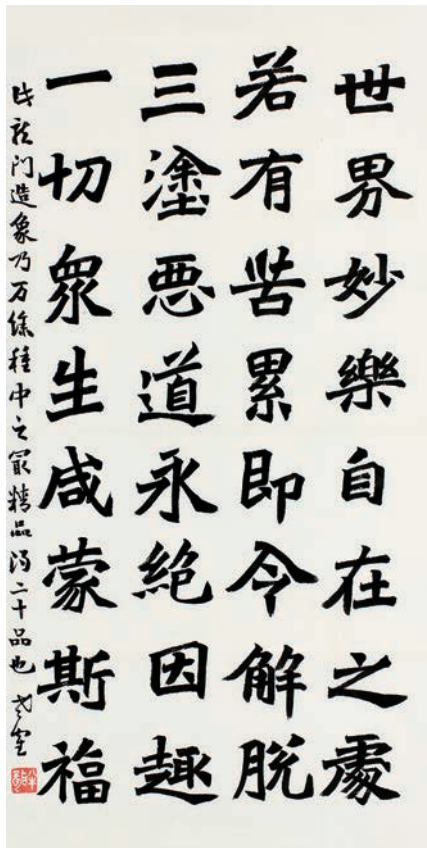 世界妙樂自在之處
若有苦累即令解脱
三塗悪道永絶因趣
一切衆生咸蒙斯福
此龍門造象乃万餘種中之冣精品 二十品也